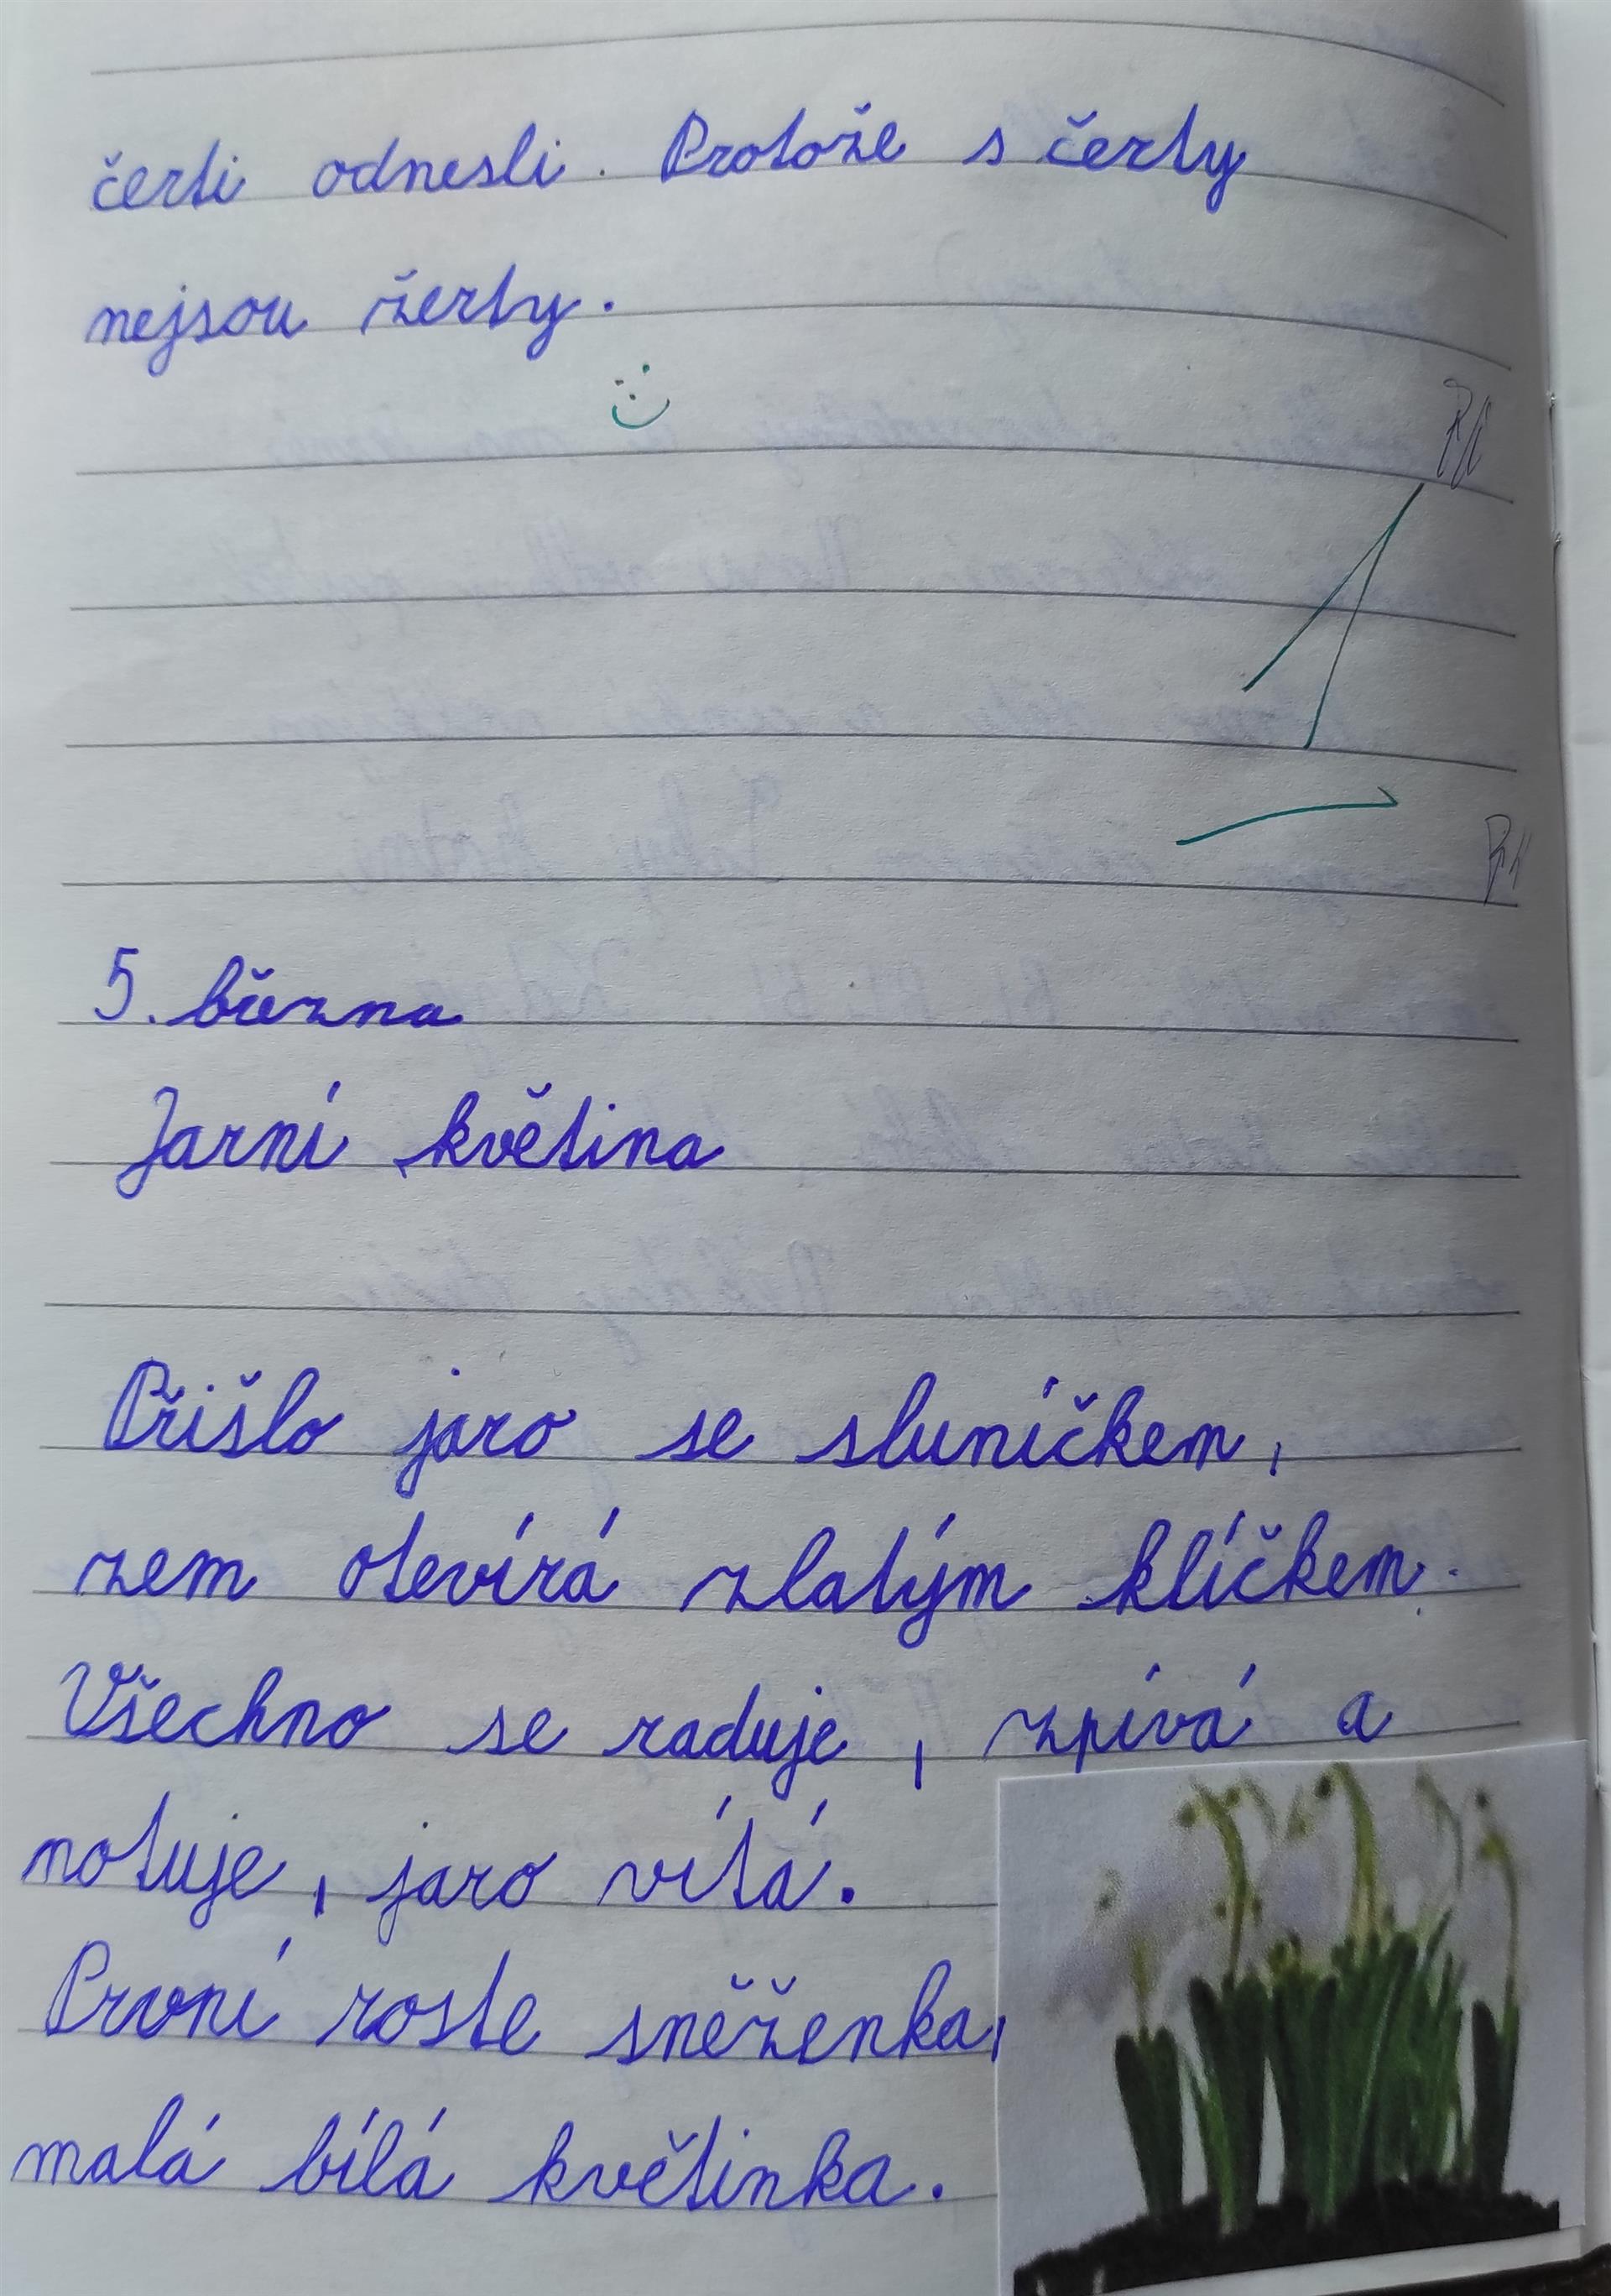 čerti odnesli. Protože s čerty
nejsou žerty.
1
5. března
Jarní květina
Přišlo jaro se sluníčkem,
zem otevírá zlatým klíčkem.
Všechno se raduje, zpívá a
notuje, jaro vítá.
První roste sněženka,
malá bílá květinka.